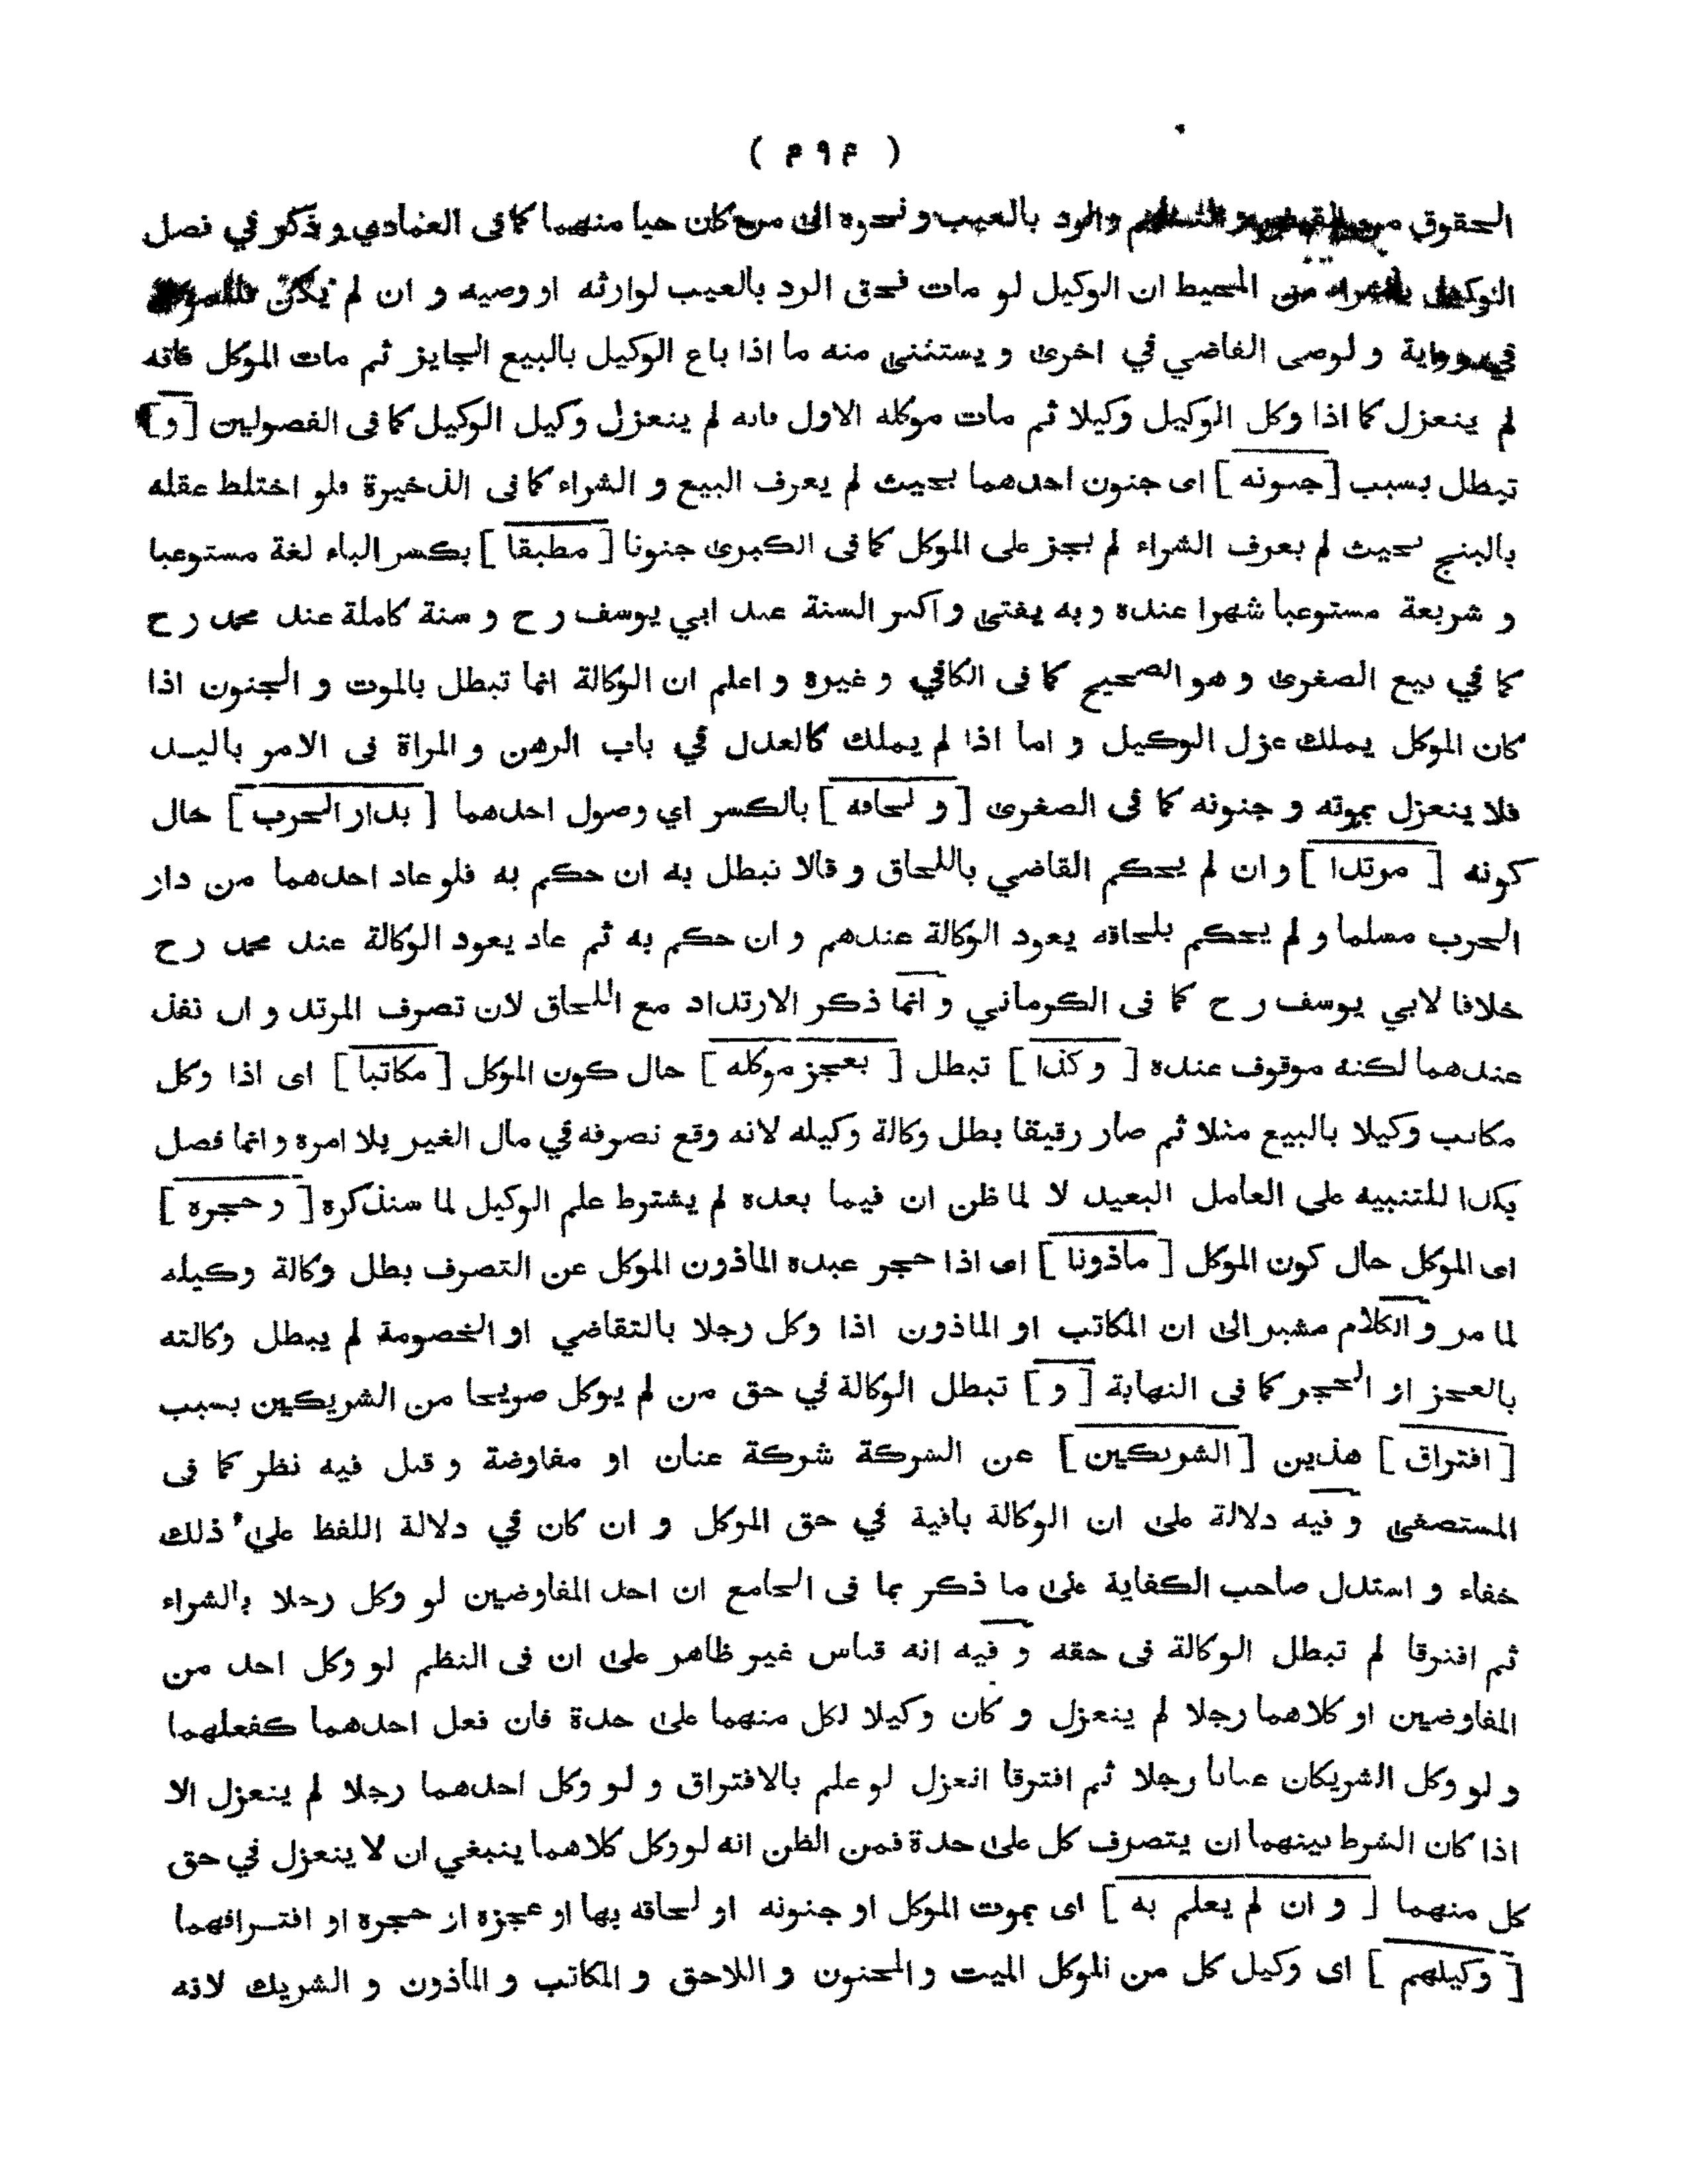 ( ۴۹۴ )
الحقوق من القبض و التسليم والرد بالعيب و نحوه الى من كان حيا منهما كما فى العمادي و ذكر في فصل
التوكيل بالشراء من المحيط ان الوكيل لو مات فحق الرد بالعيب لوارثه او وصيه و ان لم يكن فللموكل
في رواية و لوصى القاضي في اخرى و يستثنى منه ما اذا باع الوكيل بالبيع الجايز ثم مات الموكل فانه
لم ينعزل كما اذا وكل الوكيل وكيلا ثم مات موكله الاول فانه لم ينعزل وكيل الوكيل كما فى الفصولين [ و ]
تبطل بسبب [ جنونه ] اى جنون احدهما بحيث لم يعرف البيع و الشراء كما فى الذخيرة فلو اختلط عقله
بالبنج بحيث لم يعرف الشراء لم يجز على الموكل كما فى الكبرى جنونا [ مطبقا ] بكسر الباء لغة مستوعبا
و شريعة مستوعبا شهرا عنده و به يفتى و اكثر السنة عند ابي يوسف ر ح و سنة كاملة عند محمد ر ح
كما في بيع الصغرى و هو الصحيح كما فى الكافي و غيره و اعلم ان الوكالة انما تبطل بالموت و الجنون اذا
كان الموكل يملك عزل الوكيل و اما اذا لم يملك كالعدل في باب الرهن و المراة فى الامر باليد
فلا ينعزل بموته و جنونه كما فى الصغرى [ و لحاقه ] بالكسر اي وصول احدهما [ بدار الحرب ] حال
كونه [ مرتدا ] و ان لم يحكم القاضي باللحاق و قالا تبطل به ان حكم به فلو عاد احدهما من دار
الحرب مسلما و لم يحكم بلحاقه يعود الوكالة عندهم و ان حكم به ثم عاد يعود الوكالة عند محمد ر ح
خلافا لابي يوسف ر ح كما فى الكرماني و انما ذكر الارتداد مع اللحاق لان تصرف المرتد و ان نفذ
عندهما لكنه موقوف عنده [ و كذا ] تبطل [ بعجز موكله ] حال كون الموكل [ مكاتبا ] اى اذا وكل
مكاتب وكيلا بالبيع مثلا ثم صار رقيقا بطل وكالة وكيله لانه وقع تصرفه في مال الغير بلا امره و انما فصل
بكذا للتنبيه على العامل البعيد لا لما ظن ان فيما بعده لم يشترط علم الوكيل لما سنذكره [ و حجره ]
اى الموكل حال كون الموكل [ ماذونا ] اى اذا حجر عبده المأذون الموكل عن التصرف بطل وكالة وكيله
لما مر و الكلام مشير الى ان المكاتب او الماذون اذا وكل رجلا بالتقاضي او الخصومة لم يبطل وكالته
بالعجز او الحجر كما فى النهاية [ و ] تبطل الوكالة في حق من لم يوكل صريحا من الشريكين بسبب
[ افتراق ] هذين [ الشريكين ] عن الشركة شركة عنان او مفاوضة و قيل فيه نظر كما فى
المستصفى و فيه دلالة على ان الوكالة باقية في حق الموكل و ان كان في دلالة اللفظ على ذلك
خفاء و استدل صاحب الكفاية على ما ذكر بما فى الجامع ان احد المفاوضين لو وكل رجلا بالشراء
ثم افترقا لم تبطل الوكالة فى حقه و فيه انه قياس غير ظاهر على ان فى النظم لو وكل احد من
المفاوضين او كلاهما رجلا لم ينعزل و كان وكيلا لكل منهما على حدة فان فعل احدهما كفعلهما
و لو وكل الشريكان عنانا رجلا ثم افترقا انعزل لو علم بالافتراق و لو وكل احدهما رجلا لم ينعزل الا
اذا كان الشرط بينهما ان يتصرف كل على حدة فمن الظن انه لو وكل كلاهما ينبغي ان لا ينعزل في حق
كل منهما [ و ان لم يعلم به ] اى بموت الموكل او جنونه او لحاقه بها او عجزه او حجره او افتراقهما
[ وكيلهم ] اى وكيل كل من الموكل الميت و المجنون و اللاحق و المكاتب و المأذون و الشريك لانه